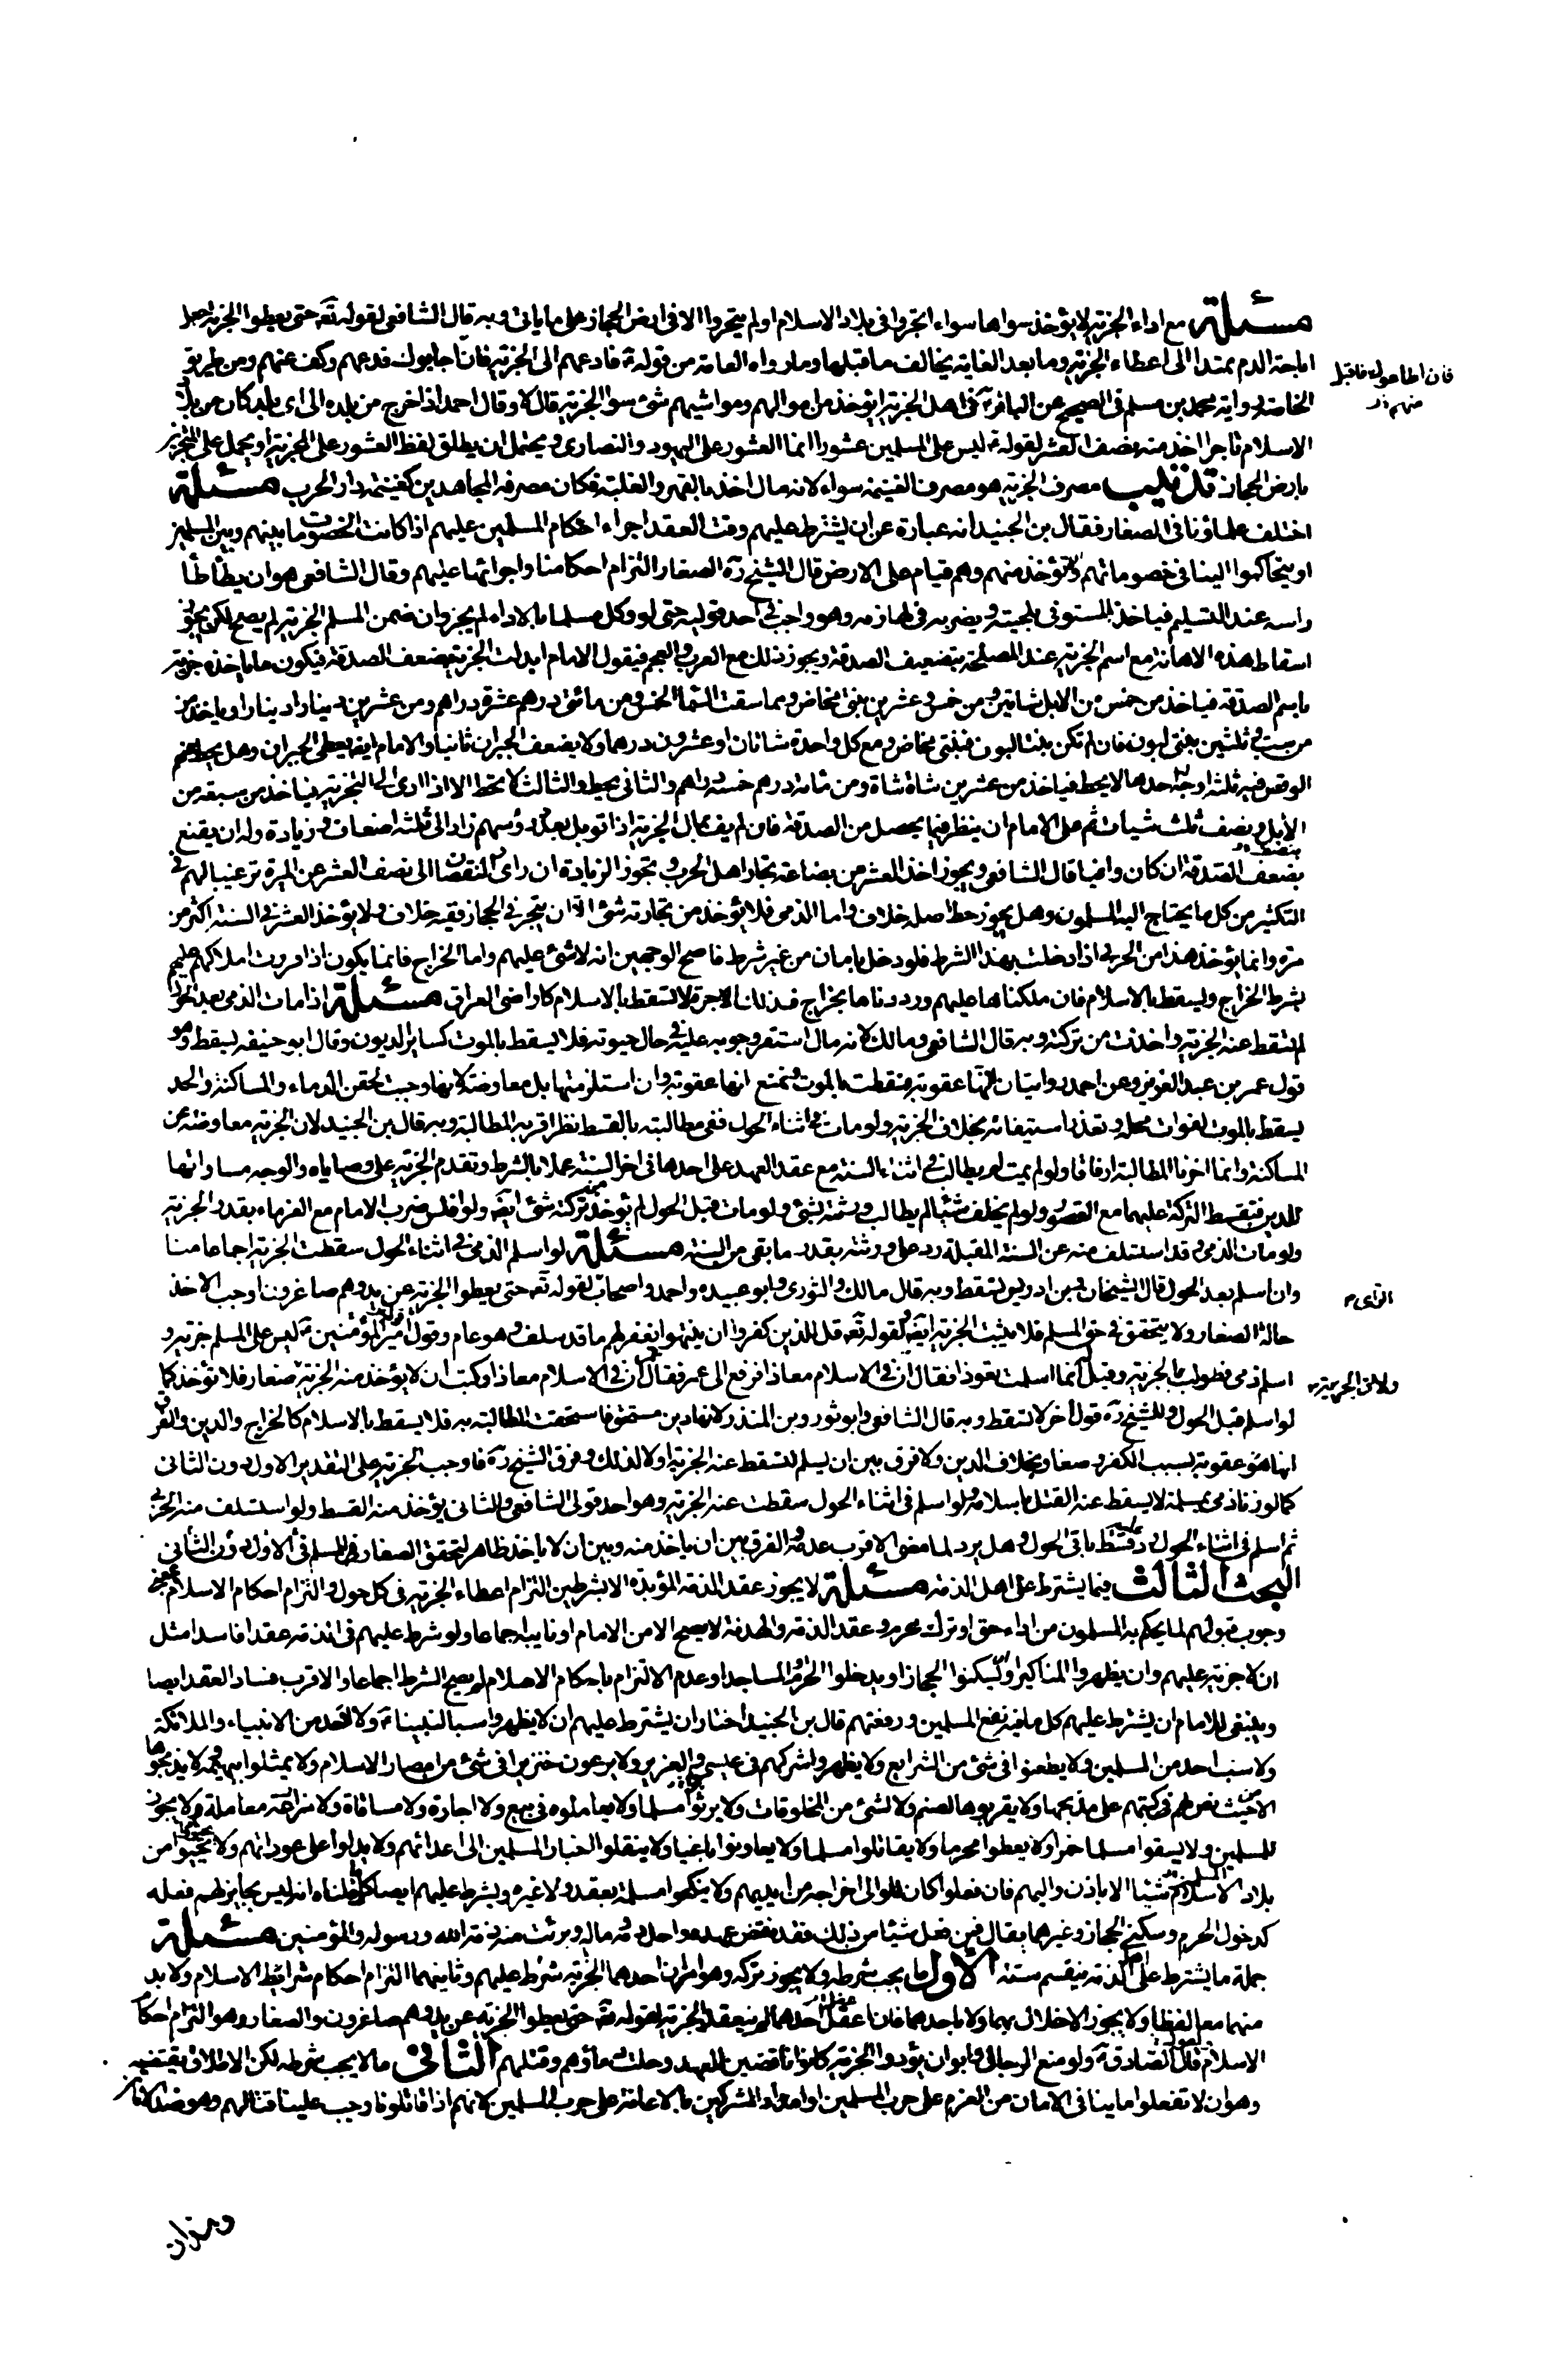 مسئلة مع اداء الجزية لا يؤخذ سواها سواء اتجروا فى بلاد الاسلام او لم يتجروا الا فى ارض الحجاز على ما ياتى وبه قال الشافعى لقوله تعه حتى يعطوا الجزية جعل
اباحة الدم ممتدا الى اعطاء الجزية وما بعد الغاية يخالف ما قبلها وما رواه العامة من قوله ع فادعهم الى الجزية فان اجابوك فدعهم وكف عنهم ومن طريق
فان اطاعوك فاقبل منهم
الخاصة رواية محمد بن مسلم فى الصحيح عن الباقر ع فى اهل الجزية ايؤخذ من اموالهم ومواشيهم شئ سوى الجزية قال لا وقال احمد اذا خرج من بلده الى اى بلد كان من بلاد
الاسلام تاجرا اخذ منه نصف العشر لقوله ع ليس على المسلمين عشور انما العشور على اليهود والنصارى ويحتمل ان يطلق لفظ العشور على الجزية او يحمل على المتجر
بارض الحجاز تذنيب مصرف الجزية هو مصرف الغنيمة سواء لانه مال اخذ بالقهر والغلبة فكان مصرفه المجاهدين كغنيمة دار الحرب مسئلة
اختلف علماؤنا فى الصغار فقال بن الجنيد انه عبارة عن ان يشترط عليهم وقت العقد اجراء احكام المسلمين عليهم اذا كانت الخصومات بينهم وبين المسلمين
او يتحاكموا الينا فى خصوماتهم وان تؤخذ منهم وهم قيام على الارض قال الشيخ ره الصغار التزام احكامنا واجرائها عليهم وقال الشافعى هو ان يطأطأ
راسه عند التسليم فياخذ المستوفى بلحيته ويضربه فى لهازمه وهو واجب فى احد قوليه حتى لو وكل مسلما بالاداء لم يجز وان ضمن المسلم الجزية لم يصح لكن يجوز
اسقاط هذه الاهانة مع اسم الجزية عند المصلحة بتضعيف الصدقة ويجوز ذلك مع العرب والعجم فيقول الامام ابدلت الجزية بضعف الصدقة فيكون ما ياخذه جزية
باسم الصدقة فياخذ من خمس من الابل شاتين ومن خمس وعشرين بنتى مخاض ومما سقت السماء الخمس ومن مائتى درهم عشرة دراهم ومن عشرين دينارا دينارا وياخذ من
من ست وثلثين بنتى لبون فان لم تكن بنتا لبون فبنتى مخاض ومع كل واحدة شاتان او عشرون درهما ولا يضعف الجبران ثانيا والامام ايضا يعطى الجبران وهل يحط عنهم
الوقص فيه ثلثة اوجه احدها لا يحط فياخذ من عشرين شاة شاة ومن مائة درهم خمسة دراهم والثانى يحط والثالث لا يحط الا اذا ادى الى التجزية فياخذ من سبعة من
الابل ونصف ثلث شيات ثم على الامام ان ينظر فيما يحصل من الصدقة فان لم يف بمال الجزية اذا قوبل بعدد رؤسهم زاد الى ثلثة اضعاف و زيادة وله ان يقنع
بضعف الصدقة ان كان وافيا قال الشافعى ويجوز اخذ العشر من بضاعة تجار اهل الحرب وتجوز الزيادة ان راى والنقصان الى نصف العشر عن الميرة ترغيبا لهم فى
التكثير من كل ما يحتاج اليه المسلمون وهل يجوز حط اصله خلاف واما الذمى فلا يؤخذ من تجارته شئ الا ان يتجر فى الحجاز ففيه خلاف ولا يؤخذ العشر فى السنة اكثر من
مرة وانما يؤخذ هذا من الحربى اذا دخلت بهذا الشرط فلو دخل بامان من غير شرط فاصح الوجهين انه لا شئ عليهم واما الخراج فانما يكون اذا قررت املاكهم عليهم
بشرط الخراج ويسقط بالاسلام فان ملكناها عليهم ورددناها بخراج فذلك الاجرة لا تسقط بالاسلام كاراضى العراق مسئلة اذا مات الذمى بعد الحول
لم تسقط عنه الجزية واخذت من تركته وبه قال الشافعى ومالك لانه مال استقر وجوبه عليه فى حال حيوته فلا يسقط بالموت كساير الديون وقال ابو حنيفه يسقط وهو
قول عمر بن عبد العزيز وعن احمد روايتان لانها عقوبة فسقطت بالموت ونمنع انها عقوبة وان استلزمتها بل معاوضة لانها وجبت لحقن الدماء والمساكنة والحد
يسقط بالموت لفوات محله وتعذر استيفائه بخلاف الجزية ولو مات فى اثناء الحول ففى مطالبته بالقسط نظر اقربه المطالبة وبه قال بن الجنيد لان الجزية معاوضة عن
المساكنة وانما اخرنا المطالبة ارفاقا ولو لم يمت لم يطالب فى اثناء السنة مع عقد العهد على احدها فى اخر السنة عملا بالشرط وتقدم الجزية على وصاياه والوجه مساواتها
للدين فتقسط التركة عليهما مع القصور ولو لم يخلف شيئا لم يطالب ورثته بشئ ولو مات قبل الحول لم يؤخذ من تركته شئ ايضه ولو افلس ضرب الامام مع الغرماء بقدر الجزية
ولو مات الذمى وقد استسلف منه عن السنة المقبلة رد على ورثته بقدر ما بقى من السنة مسئلة لو اسلم الذمى فى اثناء الحول سقطت الجزية اجماعا منا
وان اسلم بعد الحول قال الشيخان وبن ادريس تسقط وبه قال مالك والثورى وابو عبيده واحمد واصحاب لقوله تعه حتى يعطوا الجزية عن يد وهم صاغرون اوجب الاخذ
الراى
حالة الصغار ولا يتحقق فى حق المسلم فلا يثبت الجزية ايضه ولقوله تعه قل للذين كفروا ان ينتهوا يغفر لهم ما قد سلف وهو عام وقول امير المؤمنين ع ليس على المسلم جزية و
اسلم ذمى فطولب بالجزية وقيل انما اسلمت تعوذا فقال ان فى الاسلام معاذا فرفع الى عمر فقال ان فى الاسلام معاذا وكتب ان لا يؤخذ منه الجزية صغار فلا تؤخذ كما
ولان الجزية
لو اسلم قبل الحول وللشيخ ره قول اخر لا تسقط وبه قال الشافعى وابو ثور وبن المنذر لانها دين مستحق فاستحقت المطالبة به فلا يسقط بالاسلام كالخراج والدين والفرق
انها عقوبة بسبب الكفر وصغار بخلاف الدين ولا فرق بين ان يسلم لتسقط عنه الجزية او لا لذلك وفرق الشيخ ره فاوجب الجزية على التقدير الاول دون الثانى
كما لو زنا ذمى بمسلمة لا يسقط عنه القتل باسلامه ولو اسلم فى اثناء الحول سقطت عنه الجزية وهو احد قولى الشافعى والثانى يؤخذ منه القسط ولو استسلف منه الجزية
ثم اسلم فى اثناء الحول رد عليه قسط باقى الحول وهل يرد لما مضى الاقرب عدمه والفرق بين ان ياخذ منه وبين ان لا ياخذ ظاهر لتحقق الصغار فى المسلم فى الاول دون الثانى
البحث الثالث فيما يشترط على اهل الذمة مسئلة لا يجوز عقد الذمة المؤبدة الا بشرطين التزام اعطاء الجزية فى كل حول والتزام احكام الاسلام بمعنى
وجوب قبولهم لما يحكم به المسلمون من اداء حق او ترك محرم وعقد الذمة والهدنة لا يصح الا من الامام او نايبه اجماعا ولو شرط عليهم فى الذمة عقدا فاسدا مثل
ان لا جزية عليهم وان يظهروا المناكير او يسكنوا الحجاز او يدخلوا الحرم والمساجد او عدم الالتزام باحكام الاسلام لم يصح الشرط اجماعا والاقرب فساد العقد ايضا
وينبغى للامام ان يشترط عليهم كل ما فيه نفع المسلمين ورفعتهم قال بن الجنيد اختار ان يشترط عليهم ان لا يظهروا سبا لنبينا ع ولا لاحد من الانبياء والملائكة
ولا سب احد من المسلمين ولا يطعنوا فى شئ من الشرايع ولا يظهروا شركهم فى عيسى والعزير ولا يرعون خنزيرا فى شئ من امصار الاسلام ولا يمثلوا ببهيمة ولا يذبحوها
الا حيث نص لهم فى كتبهم على مذبحها ولا يقربوها لصنم ولا لشئ من المخلوقات ولا يربوا مسلما ولا يعاملوه فى بيع ولا اجارة ولا مساقاة ولا مزارعة معاملة لا يجوز
للمسلمين ولا يسقوا مسلما خمرا ولا يطعموا محرما ولا يقاتلوا مسلما ولا يعاونوا باغيا ولا ينقلوا اخبار المسلمين الى اعدائهم ولا يدلوا على عوراتهم ولا يحيوا من
بلاد الاسلام شيئا الا باذن واليهم فان فعلوا كان للوالى اخراجه من ايديهم ولا ينكحوا مسلمة بعقد ولا غيره ويشرط عليهم ايضا كلما قلناه انه ليس بجايز لهم فعله
كدخول الحرم وسكنى الحجاز وغيرهما يقال فمن فعل شيئا من ذلك فقد نقض عهده واحل دمه وماله وبرئت منه ذمة الله ورسوله والمؤمنين مسئلة
جملة ما يشترط على اهل الذمة ينقسم ستة الاول ما يجب شرطه ولا يجوز تركه وهو امران احدهما الجزية شرط عليهم وثانيهما التزام احكام شرائط الاسلام ولا بد
منهما مع لفظا ولا يجوز الاخلال بهما ولا باحدهما فان اغفل احدهما لم ينعقد الجزية لقوله تعه حتى يعطوا الجزية عن يد وهم صاغرون والصغار هو التزام احكام
الاسلام قال الصادق ع ولو منع الرجال وابوا ان يؤدوا الجزية كانوا ناقضين للعهد وحلت دماؤهم وقتلهم الثانى ما لا يجب شرطه لكن الاطلاق يقتضيه
وهو ان لا تفعلوا ما ينافى الامان من العزم على حرب المسلمين او امداد المشركين بالاعانة على حرب المسلمين لانهم اذا قاتلونا وجب علينا قتالهم وهو ضد الامان